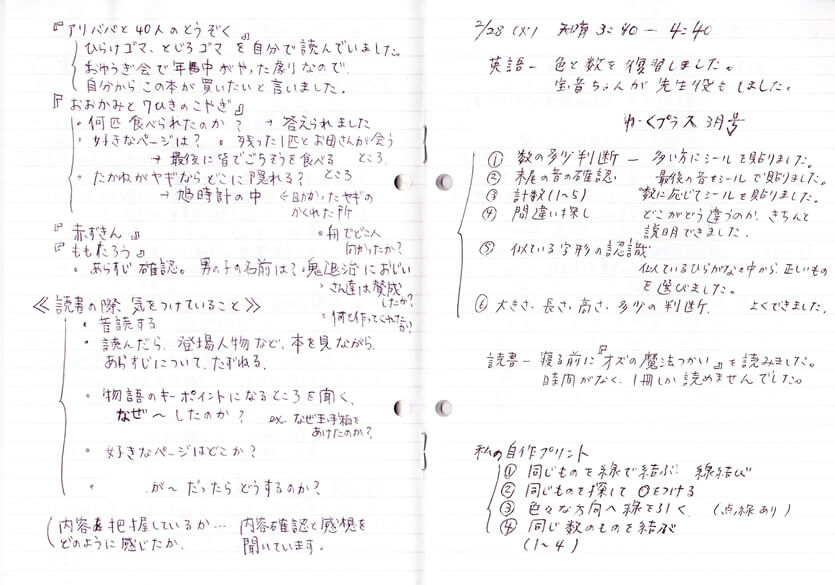 『アリババと40人のとうぞく』
ひらけゴマ、とじろゴマ を自分で読んでいました。
おゆうぎ会で年中がやった劇なので、
自分からこの本が買いたいと言いました。
『おおかみと7ひきのこやぎ』
・何匹食べられたのか? → 答えられました
・好きなページは? 。残った1匹とお母さんが会う
→ 最後に皆でごちそうを食べる ところ。
ところ
・たかねがヤギならどこに隠れる?
→ 鳩時計の中 ←助かったヤギの
かくれた所
『赤ずきん』
『ももたろう』
・あらすじ確認。男の子の名前は?
・舟でどこへ
向かったか?
・鬼退治におじい
さん達は賛成
したか?
・何を作ってくれたか?
≪読書の際、気をつけていること≫
・音読する
・読んだら、登場人物など、本を見ながら、
あらすじについて、たずねる。
・物語のキーポイントになるところを聞く、
なぜ~したのか? ex. なぜ玉手箱を
あけたのか?
・好きなページはどこか?
・ が~だったらどうするのか?
(内容を把握しているか… 内容確認と感想を
どのように感じたか、 聞いています。
2/28 (火) 3:40 ー 4:40
英語ー 色と数を復習しました。
ちゃんが先生役もしました。
わーくプラス 3月号
① 数の多少判断 ー 多い方にシールを貼りました。
② 末尾の音の確認 最後の音をシールで貼りました。
③ 計数(1~5) 数に応じてシールを貼りました。
④ 間違い探し どこがどう違うのか、きちんと
説明できました。
⑤ 似ている字形の認識
似ているひらがなの中から、正しいもの
を選びました。
⑥ 大きさ、長さ、高さ、多少の判断、 よくできました。
読書ー 寝る前に『オズの魔法つかい』を読みました。
時間がなく、1冊しか読めませんでした。
私の自作プリント
① 同じものを線で結ぶ、線結び
② 同じものを探して〇をつける
③ 色々な方向へ線を引く、(点線あり)
④ 同じ数のものを結ぶ
(1~4)